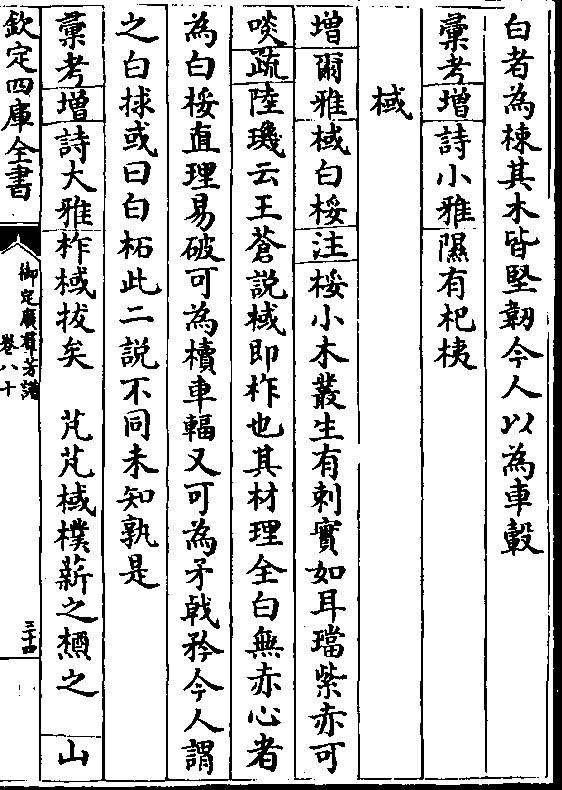 白者為棟其木皆堅韌今人以為車轂
彚考增詩小雅隰有杞桋
棫
增爾雅棫白桵注桵小木叢生有刺實如耳璫紫赤可
啖疏陸璣云王蒼説棫即柞也其材理全白無赤心者
為白桵直理易破可為櫝車輻又可為矛戟矜今人謂
之白捄或曰白柘此二説不同未知孰是
彚考增詩大雅柞棫拔矣 芃芃棫樸薪之槱之 山
欽定四庫全書
御定廣羣芳譜
卷八十
三十四